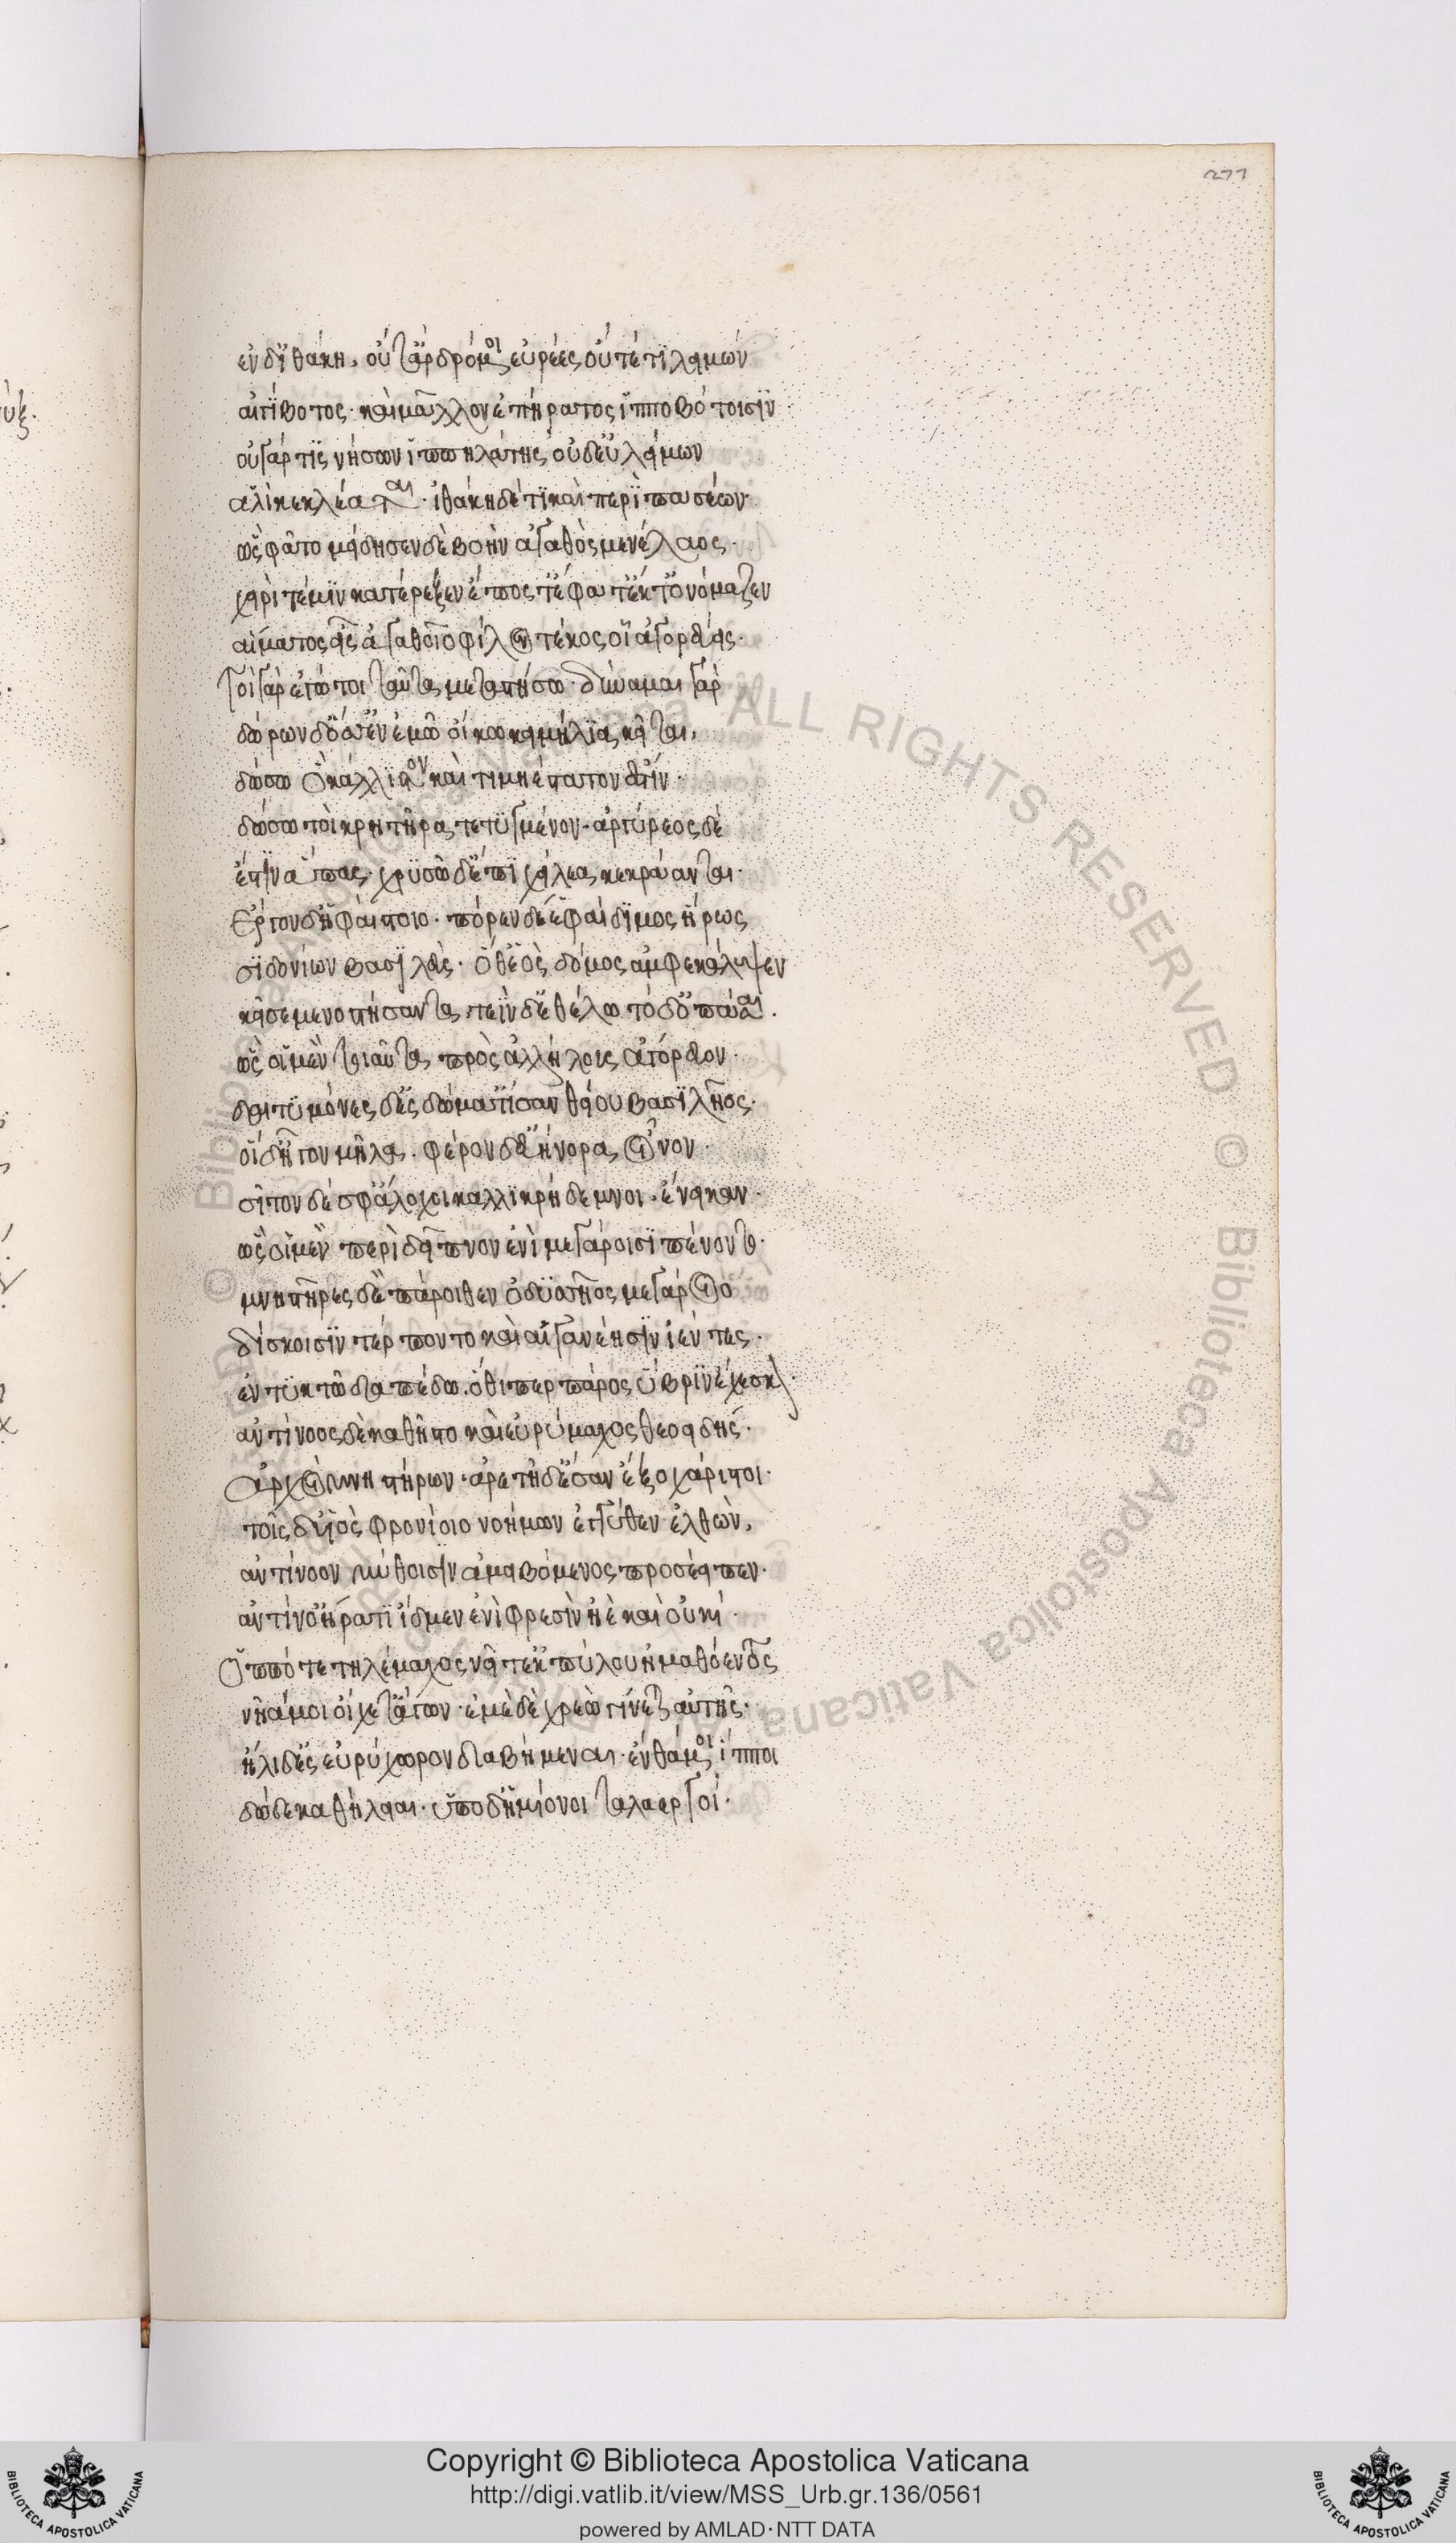 277
ἐν δ' ϊθάκη, οὔτ' ἂρ δρόμοι εὐρέες οὔτέ τι λειμών
αἰγίβοτος· καὶ μᾶλλον ἐπήρατος ἵπποβότοισϊν
οὐ γάρ τϊς νήσων ἱππηλάτης, οὐδ' εὐλείμων
αἵ θ' ἁλὶ κεκλέαται· ἰθάκη δέ τϊ καὶ περὶ πασέων·
ὣς φάτο μείδησεν δὲ βοὴν ἀγαθὸς μενέλαος·
χειρί τέ μϊν κατέρεξεν ἔπος τ' ἔφατ' ἔκ τ' ὀνόμαζεν
αἵματος εἶς ἀγαθοῖο φίλον τέκος οἷ' ἀγορεύεις·
τοὶ γὰρ ἐγώ τοι ταῦτα μεταστήσω· δύναμαι γάρ
δώρων δ' ὅσσ' ἐν ἐμῶ οἴκω κειμήλϊα κεῖται,
δώσω ὃ κάλλιστον καὶ τιμηέστατον ἐστίν·
δώσω τοὶ κρητῆρα τετϋγμένον· ἀργύρεος δὲ
ἔστϊν ἅπας· χρϋσῶ δ' ἔπϊ χείλεα κεκράανται·
ἔργον δ' ἡφαίστοιο· πόρεν δέ ἑ φαίδϊμος ἥρως
σϊδονίων βασϊλεὺς· ὅθ' ἑὸς δόμος ἀμφεκάλυψεν
κεῖσέ με νοστήσαντα, τεῒν δ' ἐθέλω τόδ' ὀπάσσαι.
ὣς οἳ μὲν τοιαῦτα πρὸς ἀλλήλους ἀγόρευον·
δαιτϋμόνες δ' ἐς δώματ' ἴσαν θείου βασϊλῆος·
οἳ δ' ἦγον μῆλα· φέρον δ' εὐήνορα οἶνον·
σῖτον δέ σφ' ἄλοχοι καλλϊκρήδεμνοι ἔνεικαν·
ὣς οἳ μὲν περὶ δεῖπνον ἐνὶ μεγάροισϊ πένοντο·
μνηστῆρες δὲ πάροιθεν ὀδϋσσῆος μεγάροιο
δίσκοισϊν τέρποντο καὶ αἰγανέησϊν ἱέντες·
ἐν τϋκτῶ δαπέδω· ὅθι περ πάρος ὕβρϊν ἔχεσκον·
ἀντίνοος δὲ καθῆστο καὶ εὐρύμαχος θεοειδής·
ἀρχοὶ μνηστήρων· ἀρετῆ δ' ἔσαν ἔξοχ' ἄριστοι·
τοῖς δ' υἱὸς φρονίοιο νοήμων ἐγγύθεν ἐλθών,
ἀντίνοον μύθοισϊν ἀμειβόμενος προσέειπεν·
ἀντίνο' ἦ ῥά τϊ ἴδμεν ἐνὶ φρεσὶν ἠὲ καὶ οὐκί·
ὁππότε τηλέμαχος νεῖτ' ἐκ πύλου ἠμαθόεντος
νῆά μοι οἴχετ' ἄγων· ἐμὲ δὲ χρεὼ γίνεται αὐτῆς·
ἤλιδ' ἐς εὐρύχωρον διαβήμεναι· ἔνθά μοι ἵπποι
δώδεκα θήλειαι· ὑπὸ δ' ἡμίονοι ταλαεργοί·
ALL RIGHTS RESERVED © Biblioteca Apostolica Vaticana
Copyright © Biblioteca Apostolica Vaticana
http://digi.vatlib.it/view/MSS_Urb.gr.136/0561
powered by AMLAD·NTT DATA
BIBLIOTECA APOSTOLICA VATICANA
BIBLIOTECA APOSTOLICA VATICANA